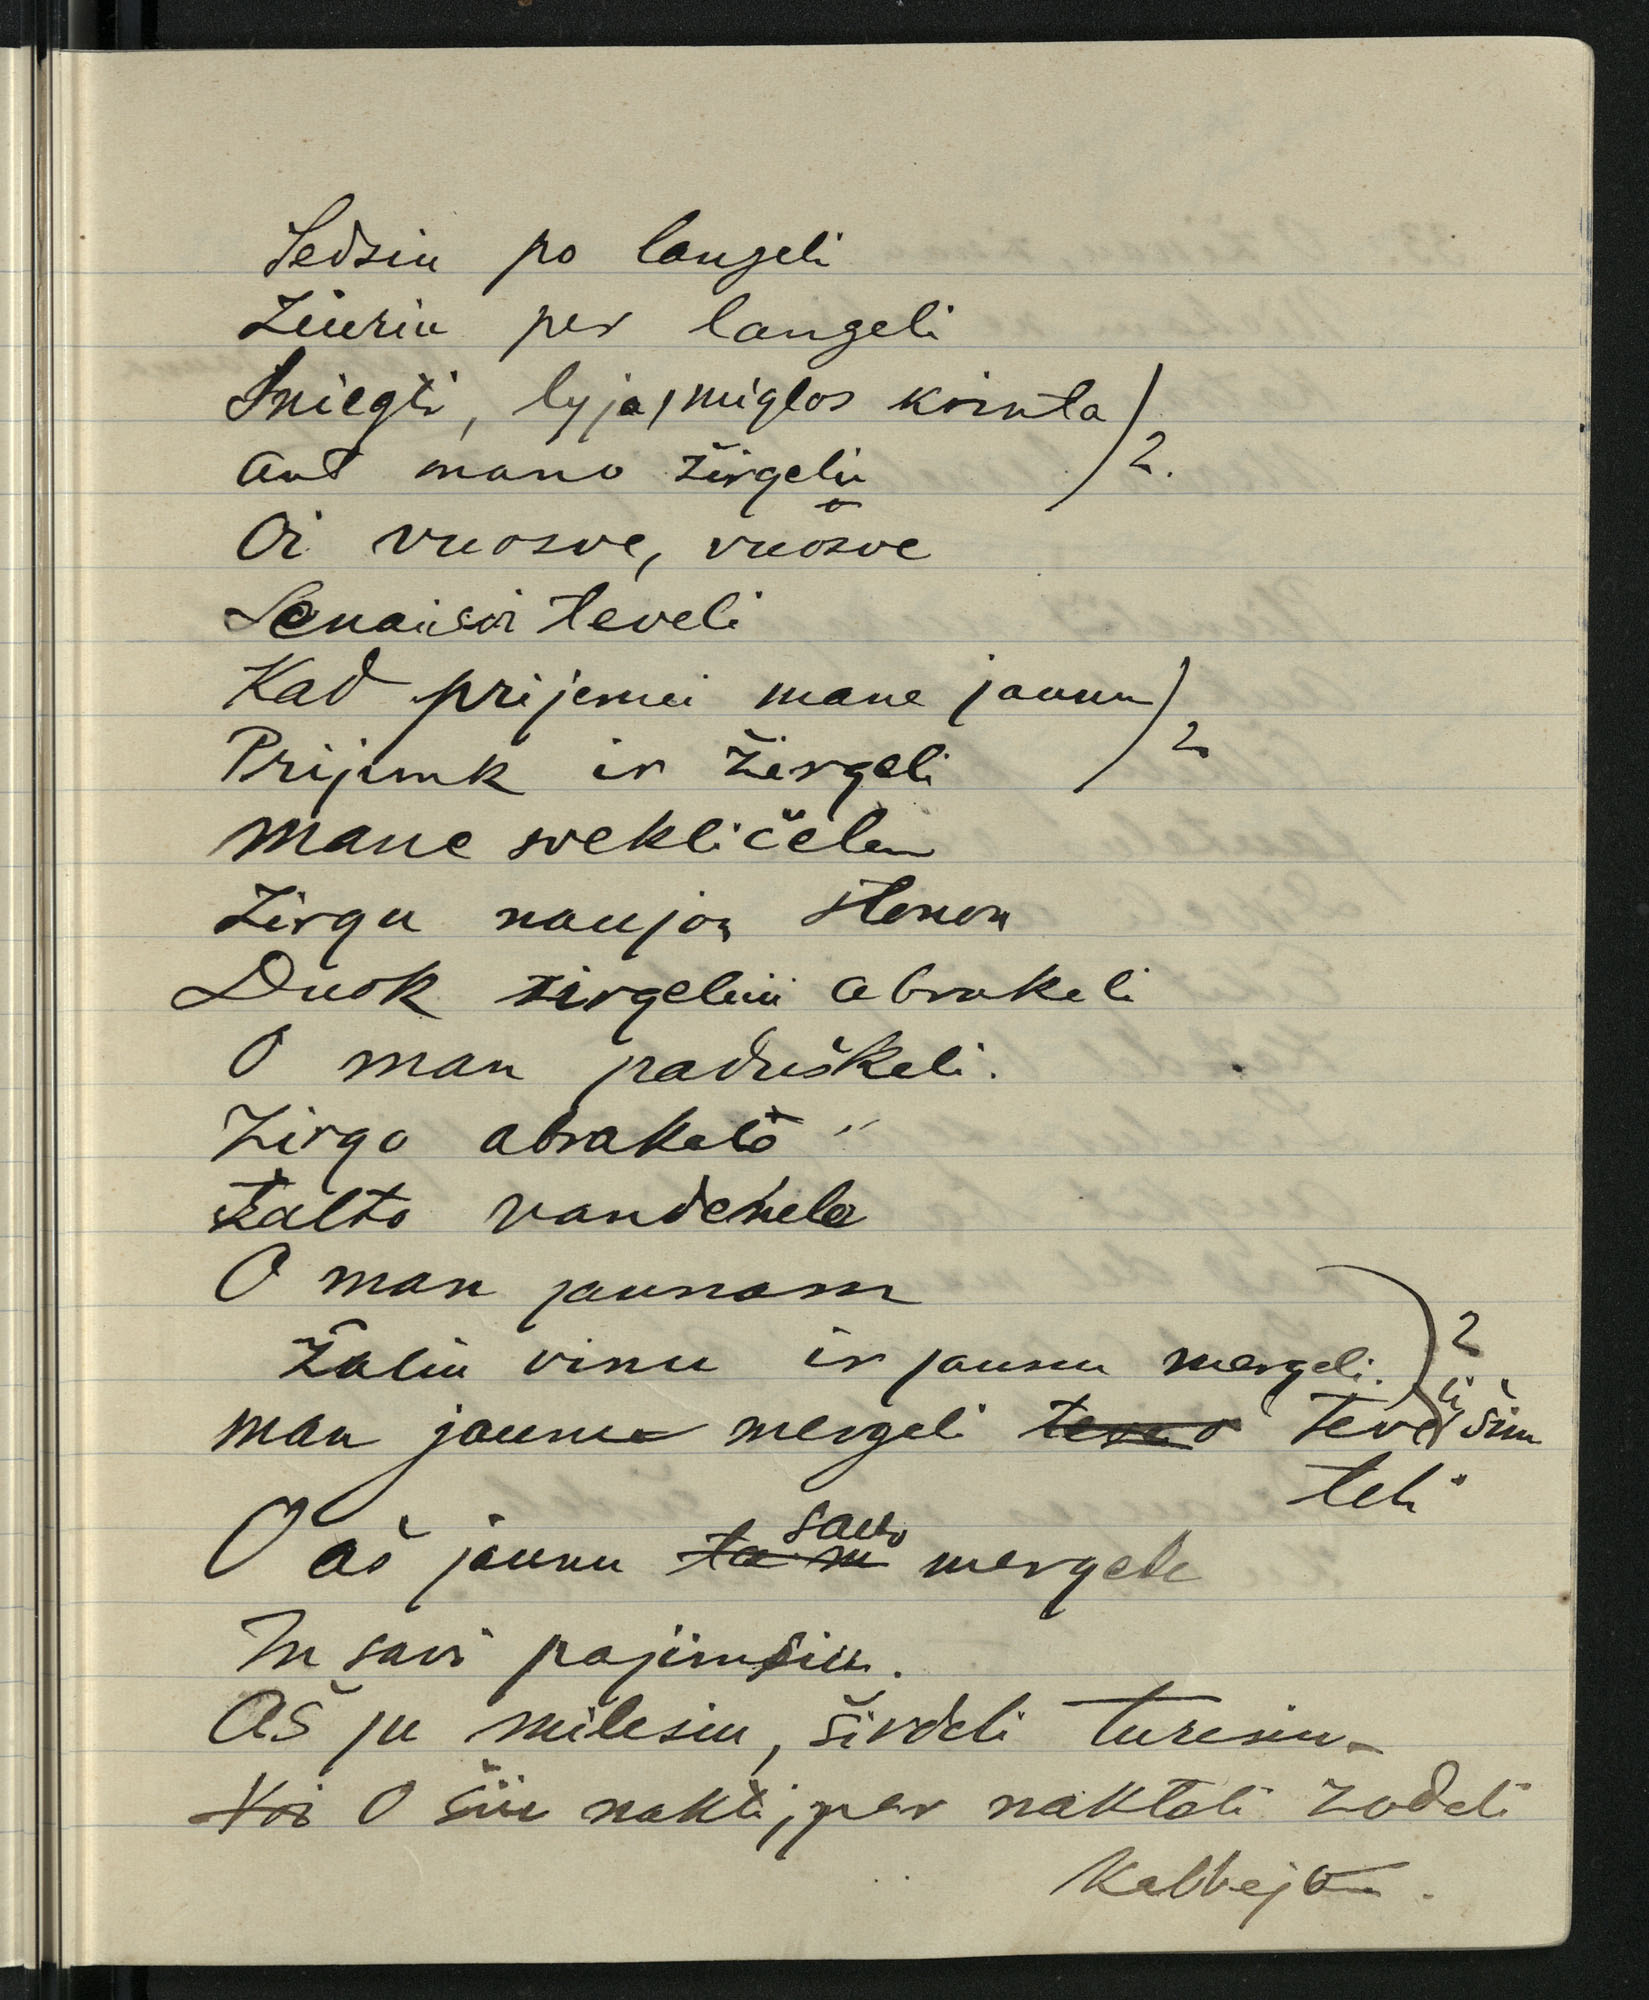 Sedziu po langeli
Žiuriu per langeli
Sniegti, lyja, miglos krinta ) 2.
ant mano žirgeliu
Oi vuosve, vuosve
Senaisis teveli
Kad prijemei mane jaunu ) 2
Prijimk ir žirgeli
Mane svekličelen
Žirgu naujon stonon
Duok žirgeliui abrakeli
O man paduškeli.
Žirgo abrakelo
šalto vandenela
O man jaunam
Žaliu vinu ir jaunu mergeli. ) 2
man jaunu mergeli teveli šim
teli
O aš jaunu savo mergele
In savi pajimsiu.
Aš ju milesiu, širdeli turesiu
O šiu nakti, per nakteli žodeli
Kalbejau.